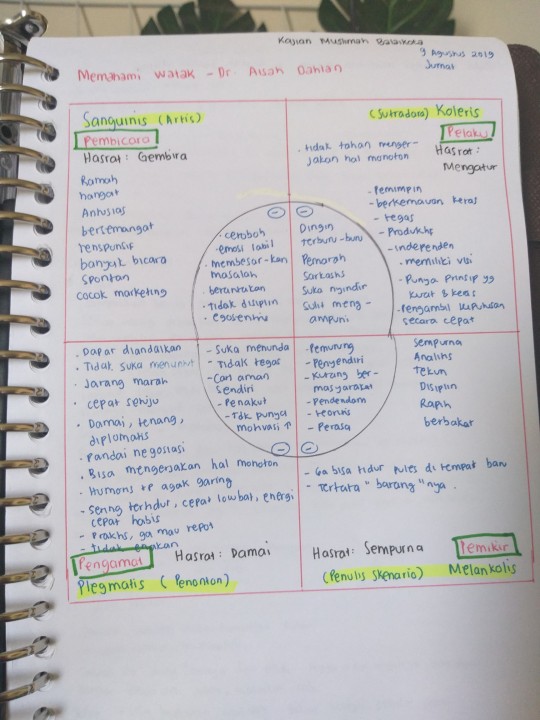 Kajian Muslimah Balaikota
9 Agustus 2019
Jumat
Memahami Watak - Dr. Aisah Dahlan
Sanguinis (Artis)
Pembicara
Hasrat : Gembira
Ramah
hangat
Antusias
bersemangat
responsif
banyak bicara
spontan
cocok marketing
(Sutradara) Koleris
Pelaku
Hasrat :
Mengatur
· tidak tahan menger-
jakan hal monoton
- Pemimpin
- berkemauan keras
- tegas
- Produktif
- independen
· memiliki visi
- Punya prinsip yg
kuat & keras
- Pengambil keputusan
secara cepat
· ceroboh
· emosi labil
· membesar-kan
masalah
· berantakan
· tidak disiplin
· egosentris
Dingin
Terburu-buru
Pemarah
Sarkastis
Suka nyindir
Sulit meng-
ampuni
· Dapat diandalkan
· Tidak suka menuntut
· Jarang marah
· cepat setuju
· Damai, tenang,
diplomatis
· Pandai negosiasi
· Bisa mengerjakan hal monoton
· Humoris tp agak garing
- Sering tertidur, cepat lowbat, energi
cepat habis
- Praktis, ga mau repot
- Tidak enakan
Pengamat
Hasrat : Damai
Plegmatis (Penonton)
- Suka menunda
- Tidak tegas
- Cari aman
sendiri
- Penakut
- Tdk punya
motivasi ↑
- Pemurung
- Penyendiri
- Kurang ber-
masyarakat
- Pendendam
- teoritis
- Perasa
Sempurna
Analitis
Tekun
Disiplin
Rapih
berbakat
- Ga bisa tidur pules di tempat baru
- Tertata "barang"nya.
Hasrat : Sempurna
Pemikir
(Penulis Skenario) Melankolis